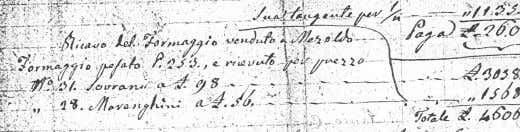 Sua tangente per 1/11 „ 1155
Paga £ 260
Ricavo del Formaggio venduto a Mezoldo
Formaggio pesato P. 253., e ricevuto per prezzo
N.º 31. Sovrane a £ 98 £ 3038
„ 28. Marenghini a £. 56. „ 1568
Totale £. 4606